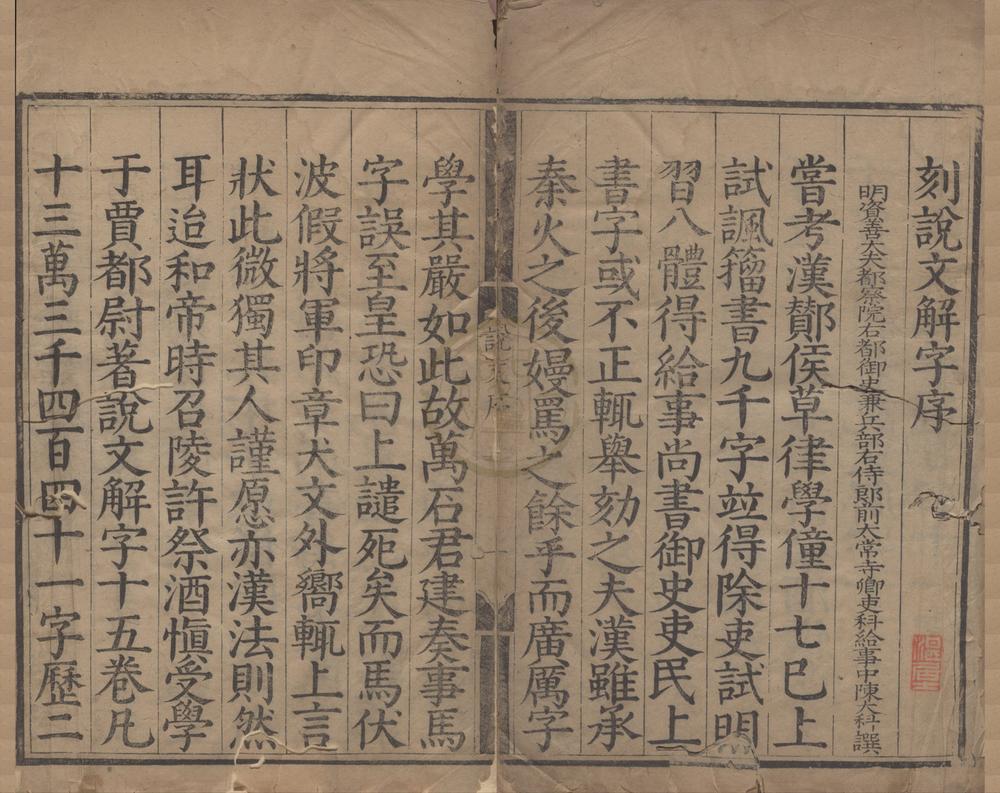 刻說文解字序
明資善大夫都察院右都御史兼兵部右侍郎前太常寺卿吏科給事中陳大科譔
嘗考漢酇侯草律學僮十七已上
試諷籀書九千字竝得除吏試明
習八體得給事尚書御史吏民上
書字或不正輒舉劾之夫漢雖承
秦火之後嫚罵之餘乎而廣厲字
說文序
一
學其嚴如此故萬石君建奏事馬
字誤至皇恐曰上譴死矣而馬伏
波假將軍印章犬文外嚮輒上言
狀此微獨其人謹愿亦漢法則然
耳迨和帝時召陵許祭酒愼受學
于賈都尉著說文解字十五卷凡
十三萬三千四百四十一字歷二